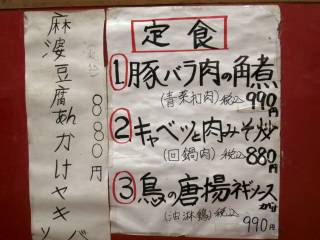 定食
①豚バラ肉の角煮
(青菜扣肉) 税込 990円
②キャベツと肉みそ炒
(回鍋肉) 税込 880円
③鳥の唐揚ネギソース
がけ
(油淋鶏) 税込 990円
麻婆豆腐あんかけヤキソバ
880円